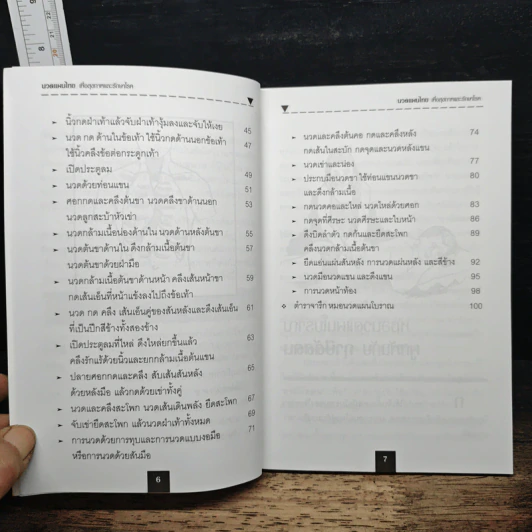 นวดแผนไทย เพื่อสุขภาพและรักษาโรค
➢ นิ้วกดฝ่าเท้าแล้วจับฝ่าเท้างุ้มลงและจับให้งอ 45
➢ นวด กด ด้านในข้อเท้า ใช้นิ้วกดด้านนอกข้อเท้า 47
ใช้นิ้วคลึงข้อต่อกระดูกเท้า
➢ เปิดประตูลม 49
➢ นวดด้วยท่อนแขน 51
➢ ศอกกดและคลึงต้นขา นวดคลึงขาด้านนอก 53
นวดลูกสะบ้าหัวเข่า
➢ นวดกล้ามเนื้อน่องด้านใน นวดด้านหลังต้นขา 55
➢ นวดต้นขาด้านใน ดึงกล้ามเนื้อต้นขา 57
นวดต้นขาด้วยฝ่ามือ
➢ นวดกล้ามเนื้อต้นขาด้านหน้า คลึงเส้นหน้าขา 59
กดเส้นเอ็นที่หน้าแข้งลงไปถึงข้อเท้า
➢ นวด กด คลึง เส้นเอ็นคู่ของสันหลังและดึงเส้นเอ็น 61
ที่เป็นปีกสีข้างทั้งสองข้าง
➢ เปิดประตูลมที่ไหล่ ดึงไหล่ยกขึ้นแล้ว 63
คลึงรักแร้ด้วยนิ้วและยกกล้ามเนื้อต้นแขน
➢ ปลายศอกกดและคลึง สับเส้นสันหลัง 65
ด้วยหลังมือ แล้วกดด้วยเข่าทั้งคู่
➢ นวดและคลึงสะโพก นวดเส้นเดินพลัง ยืดสะโพก 67
➢ จับเข่ายืดสะโพก แล้วนวดฝ่าเท้าทั้งหมด 69
➢ การนวดด้วยการทุบและการนวดแบบงอมือ 71
หรือการนวดด้วยสันมือ
6
นวดแผนไทย เพื่อสุขภาพและรักษาโรค
➢ นวดและคลึงต้นคอ กดและคลึงหลัง 74
กดเส้นในสะบัก กดจุดและนวดหลังแขน
➢ นวดเข่าและน่อง 77
➢ ประกบมือนวดขา ใช้ท่อนแขนนวดขา 80
และดึงกล้ามเนื้อ
➢ กดนวดคอและไหล่ นวดไหล่ด้วยศอก 83
➢ กดจุดที่ศีรษะ นวดศีรษะและใบหน้า 86
➢ ดึงบิดลำตัว กดก้นและยืดสะโพก 89
คลึงนวดกล้ามเนื้อต้นขา
➢ ยืดแอ่นแผ่นสันหลัง การนวดแผ่นหลัง และสีข้าง 92
➢ นวดมือนวดแขน และดึงแขน 95
➢ การนวดหน้าท้อง 98
❖ ตำราจารึก หมอนวดแผนโบราณ 100
7